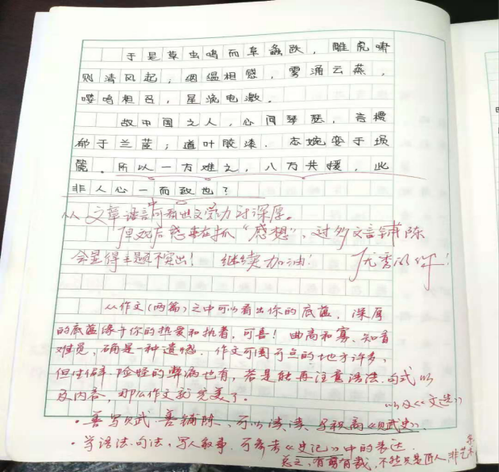 于是草虫鸣而阜螽跃，雕虎啸
则清风起；絪缊相感，雾涌云蒸，
嘤鸣相召，星流电激。
故中国之人，心同琴瑟，言
郁于兰茝；道叶胶漆，志婉娈于埙
篪。所以一方难之，八方共援，此
非人心一而致也？
从文章语言可看出文学功底深厚。
原始后感 重在抓“感想”，过多文言铺陈
会显得主题不突出！ 继续加油！
从作文(两篇)之中可以看出你的底蕴，深厚
的底蕴缘于你的热爱和执着，可喜！曲高和寡，知音
难觅，确是一种遗憾。作文可圈可点的地方许多，
但生僻 的弊病也有，若是能再注意语法、句式以
及内容，那么作文就完美了。
以及《文选》
·善写 武，善铺陈，可以读读
·学语法、句法，写人叙事，可参考《史记》中的表达
总之，有剪有裁，不然只是匠人，非艺